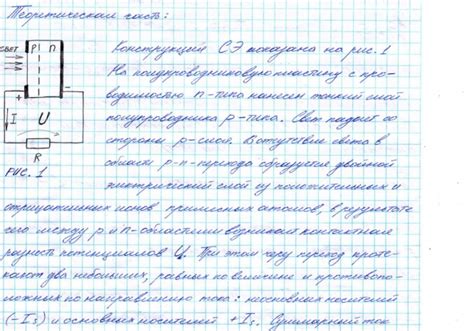 Теоретическая часть:
Конструкция СЭ показана на рис. 1
На полупроводниковую пластину с про-
водимостью n-типа нанесен тонкий слой
полупроводника p-типа. Свет падает со
стороны p-слоя. В отсутствие света в
области p-n-перехода образуется двойной
электрический слой из положительных и
отрицательных ионов примесных атомов, в результате
чего между p и n-областями возникает контактная
разность потенциалов U. При этом через переход проте-
кают два небольших, равных по величине и противопо-
ложных по направлению тока: неосновных носителей
(-Is) и основных носителей +Is. Суммарный ток
СВЕТ
P
n
+
-
I
U
R
РИС. 1